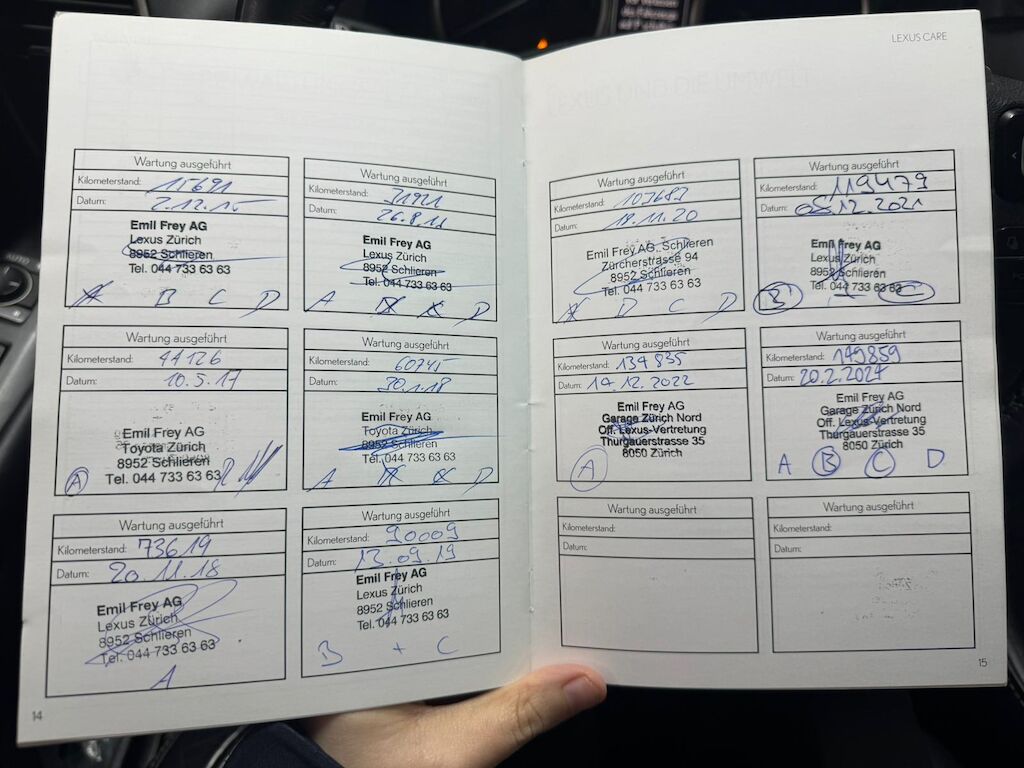 LEXUS CARE
Wartung ausgeführt
Kilometerstand: 15691
Datum: 2.12.15
Emil Frey AG
Lexus Zürich
8952 Schlieren
Tel. 044 733 63 63
A B C D
Wartung ausgeführt
Kilometerstand: 31921
Datum: 26.8.16
Emil Frey AG
Lexus Zürich
8952 Schlieren
Tel. 044 733 63 63
A B C D
Wartung ausgeführt
Kilometerstand: 44126
Datum: 10.5.17
Emil Frey AG
Toyota Zürich
8952 Schlieren
Tel. 044 733 63 63
A
Wartung ausgeführt
Kilometerstand: 60745
Datum: 30.1.18
Emil Frey AG
Toyota Zürich
8952 Schlieren
Tel. 044 733 63 63
A B C D
Wartung ausgeführt
Kilometerstand: 73619
Datum: 20.11.18
Emil Frey AG
Lexus Zürich
8952 Schlieren
Tel. 044 733 63 63
A
Wartung ausgeführt
Kilometerstand: 90009
Datum: 13.09.19
Emil Frey AG
Lexus Zürich
8952 Schlieren
Tel. 044 733 63 63
B + C
14
Wartung ausgeführt
Kilometerstand: 103683
Datum: 18.11.20
Emil Frey AG, Schlieren
Zürcherstrasse 94
8952 Schlieren
Tel. 044 733 63 63
A B C D
Wartung ausgeführt
Kilometerstand: 119479
Datum: 08.12.2021
Emil Frey AG
Lexus Zürich
8952 Schlieren
Tel. 044 733 63 63
B + C
Wartung ausgeführt
Kilometerstand: 134835
Datum: 14.12.2022
Emil Frey AG
Garage Zürich Nord
Off. Lexus-Vertretung
Thurgauerstrasse 35
8050 Zürich
A
Wartung ausgeführt
Kilometerstand: 149859
Datum: 20.2.2024
Emil Frey AG
Garage Zürich Nord
Off. Lexus-Vertretung
Thurgauerstrasse 35
8050 Zürich
A B C D
Wartung ausgeführt
Kilometerstand:
Datum:
Wartung ausgeführt
Kilometerstand:
Datum:
15